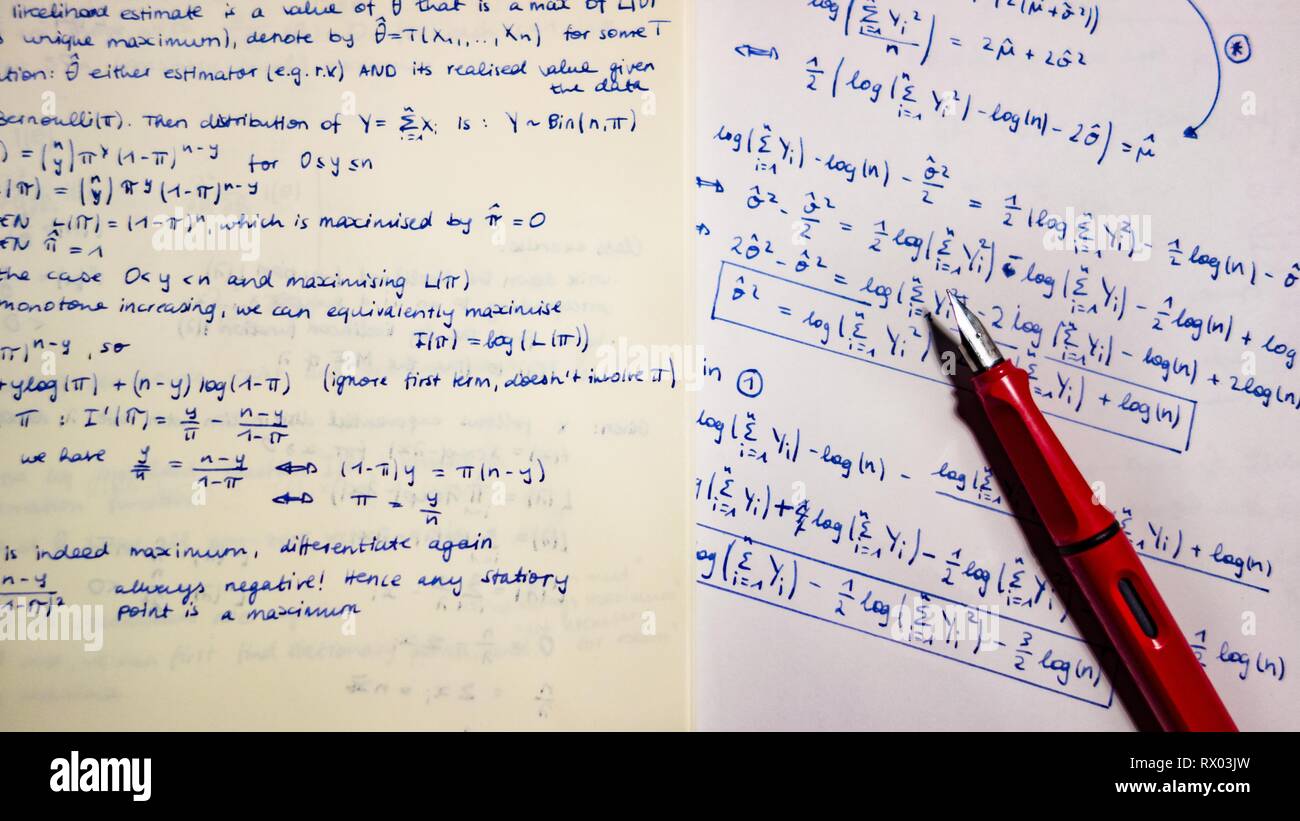 likelihood estimate is a value of θ that is a max of L(θ)
unique maximum), denote by θ̂=T(X₁,..,Xn) for some T
tion: θ̂ either estimator (e.g. r.v) AND its realised value given
the data
Bernoulli(π). Then distribution of Y= Σⁿᵢ₌₁ Xᵢ is: Y~Bin(n,π)
) = (n y) π^y (1-π)^n-y for 0≤y≤n
L(π) = (n y) π^y (1-π)^n-y
EN L(π) = (1-π)^n, which is maximised by π̂ = 0
EN π̂ = 1
the case 0<y<n and maximising L(π)
monotone increasing, we can equivalently maximise
π)^n-y, so l(π) = log(L(π))
+ylog(π) + (n-y) log(1-π) (ignore first term, doesn't involve π)
π : l'(π) = y/π - (n-y)/(1-π)
we have y/π = (n-y)/(1-π) ⇔ (1-π)y = π(n-y)
⇔ π = y/n
is indeed maximum, differentiate again
n-y/(1-π)² always negative! Hence any stationy
point is a maximum
(μ̂+σ̂²))
log(Σⁿᵢ₌₁ Yᵢ²/n) = 2μ̂ + 2σ̂²
⇔ 1/2 (log(Σⁿᵢ₌₁ Yᵢ²) - log(n) - 2σ̂) = μ̂
*
log(Σⁿᵢ₌₁ Yᵢ) - log(n) - σ̂²/2 = 1/2 (log Σⁿᵢ₌₁ Yᵢ²) - 1/2 log(n) - σ̂
σ̂² - σ̂²/2 = 1/2 log(Σⁿᵢ₌₁ Yᵢ²) - log(Σⁿᵢ₌₁ Yᵢ) - 1/2 log(n) + log
2σ̂² - σ̂² = log(Σⁿᵢ₌₁ Yᵢ²) - 2 log(Σⁿᵢ₌₁ Yᵢ) - log(n) + 2log(n)
σ̂² = log(Σⁿᵢ₌₁ Yᵢ²) Σⁿᵢ₌₁ Yᵢ) + log(n)
in ①
log(Σⁿᵢ₌₁ Yᵢ) - log(n) - log(Σⁿᵢ₌₁ Yᵢ) + log(n)
g(Σⁿᵢ₌₁ Yᵢ) + log(Σⁿᵢ₌₁ Yᵢ) - 1/2 log(Σⁿᵢ₌₁ Yᵢ² 1/2 log(n)
log(Σⁿᵢ₌₁ Yᵢ) - 1/2 log(Σⁿᵢ₌₁ Yᵢ²) - 3/2 log(n)
alamy
Image ID: RX03JW
www.alamy.com